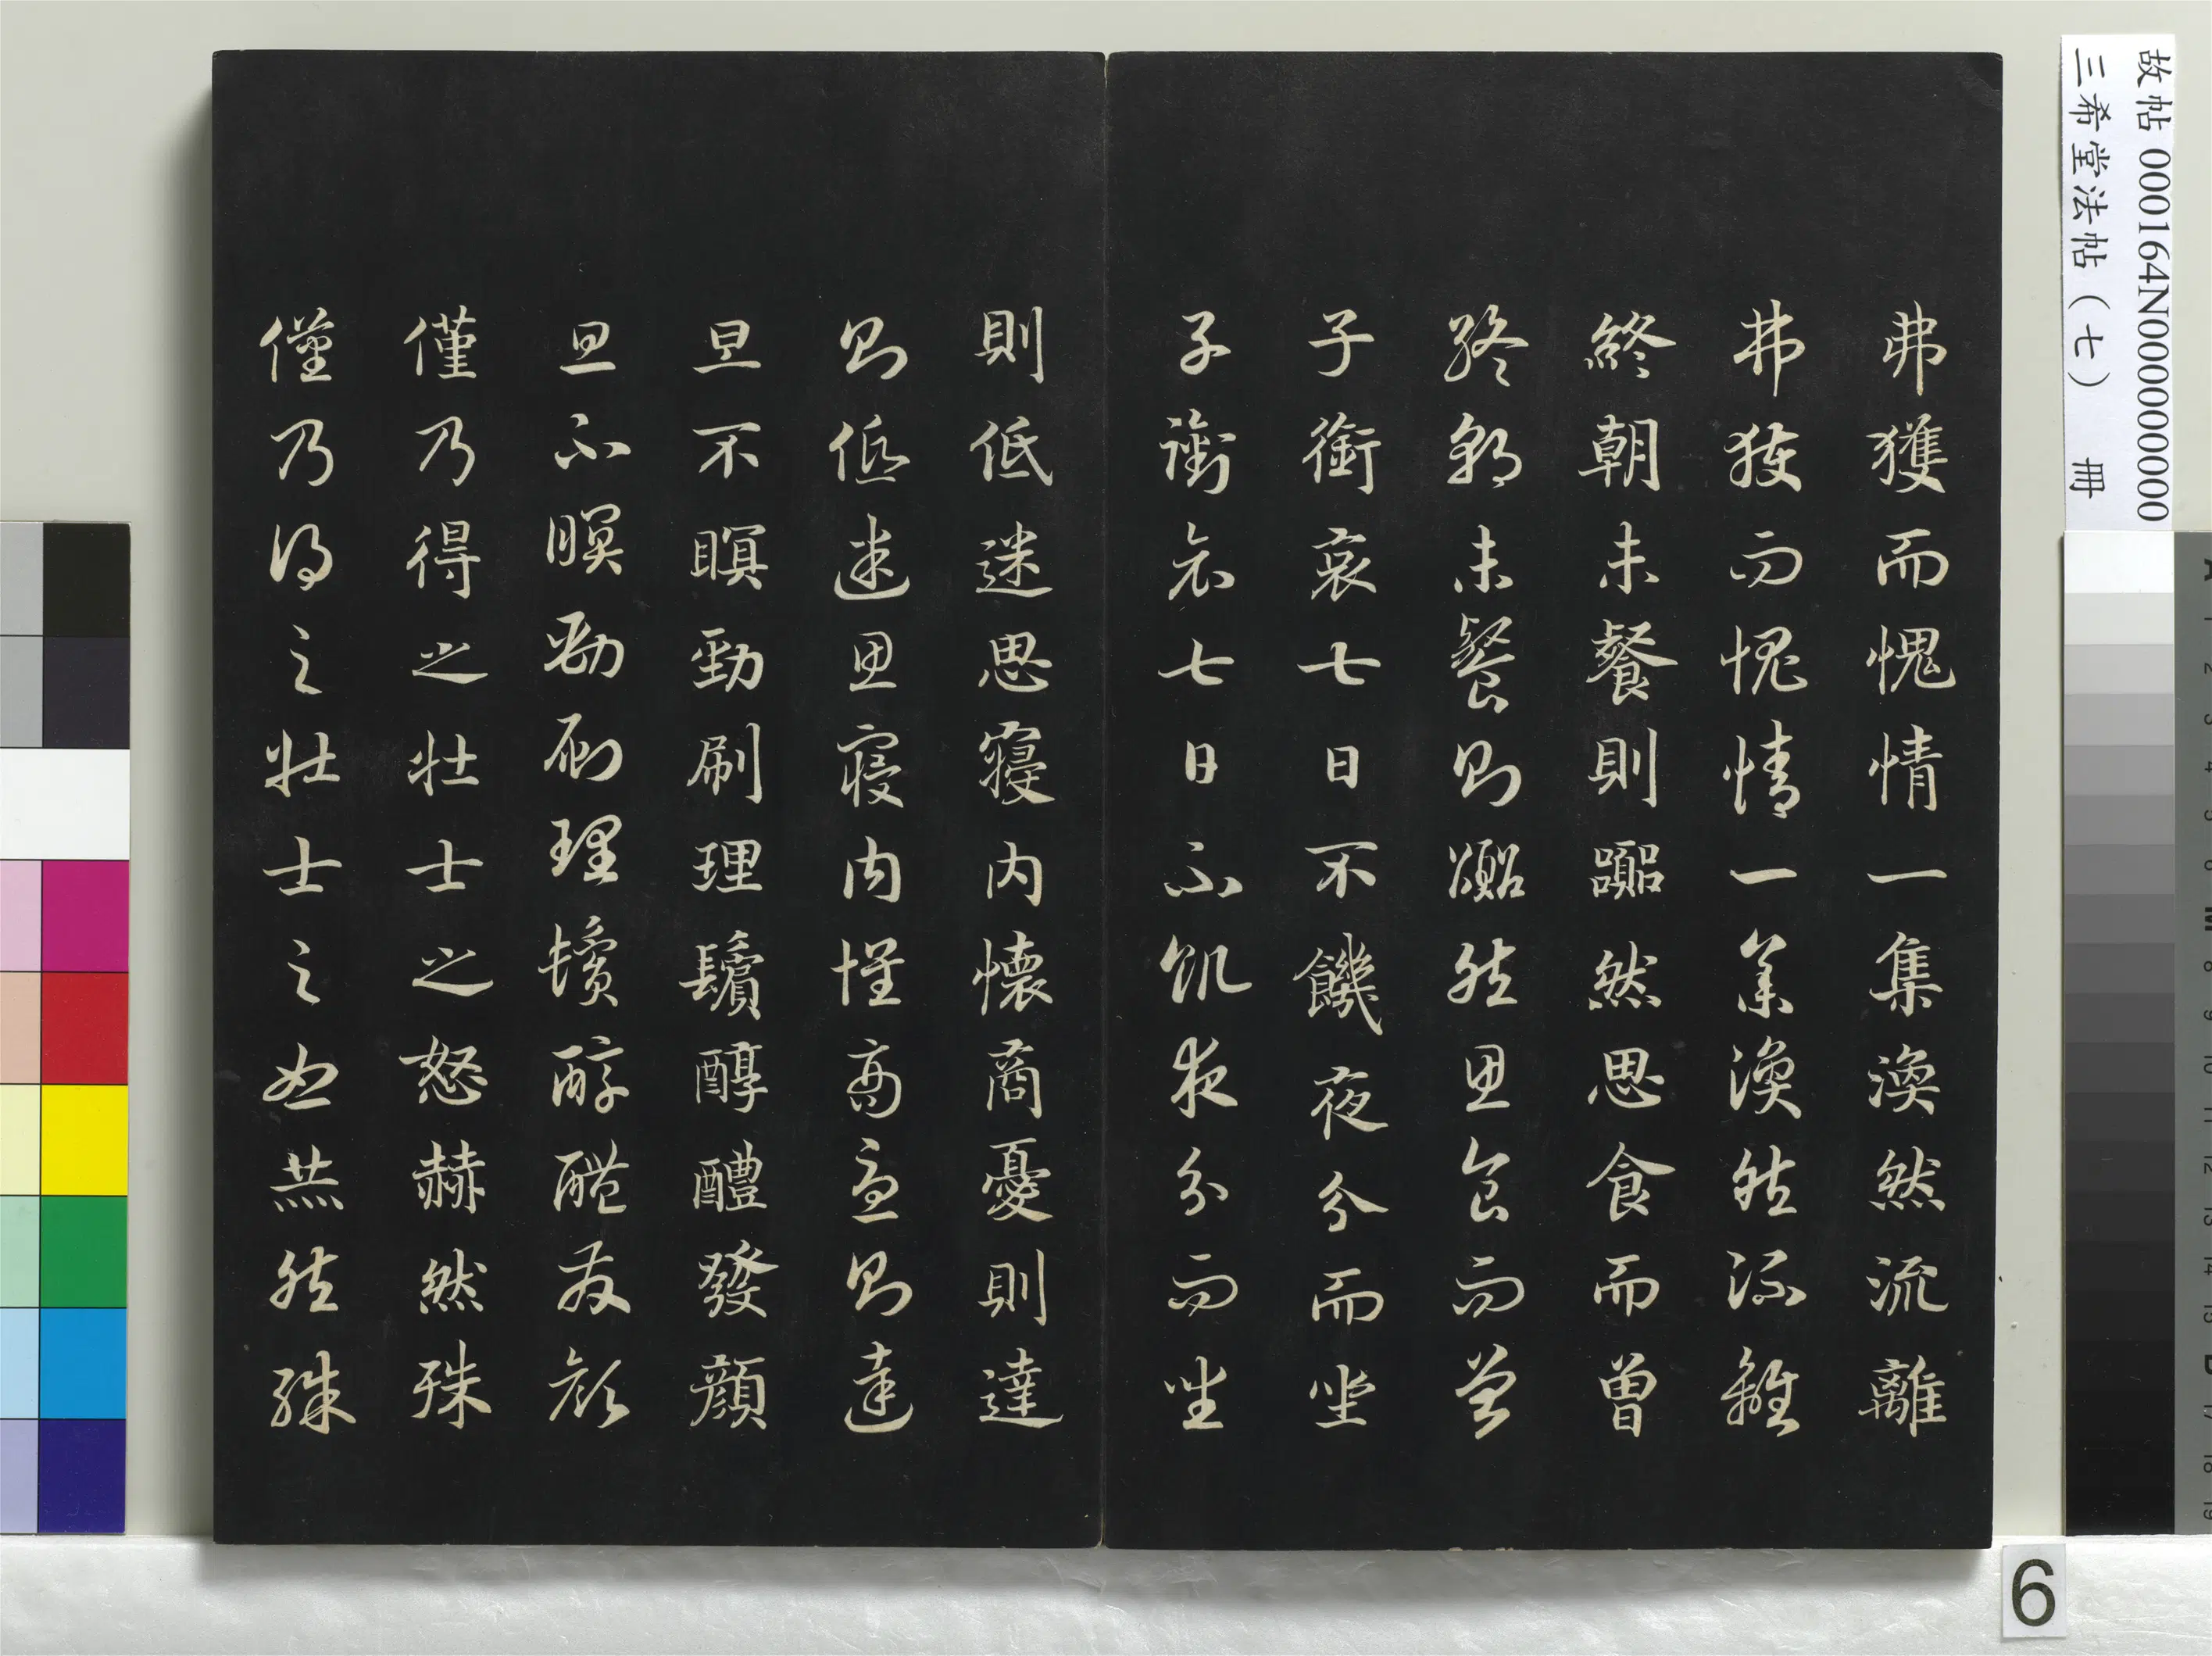 故帖 000164N000000000
三希堂法帖（七） 冊
弗獲而愧情一集渙然流離
弗獲而愧情一集渙然流離
終朝未餐則嚻然思食而曾
終朝未餐則嚻然思食而曾
子銜哀七日不饑夜分而坐
子銜哀七日不飢夜分而坐
則低迷思寢內懷商憂則達
則低迷思寢內懷商憂則達
旦不瞑勁刷理鬢醇醴發顏
旦不瞑勁刷理鬢醇醴發顏
僅乃得之壯士之怒赫然殊
僅乃得之壯士之怒赫然殊
6